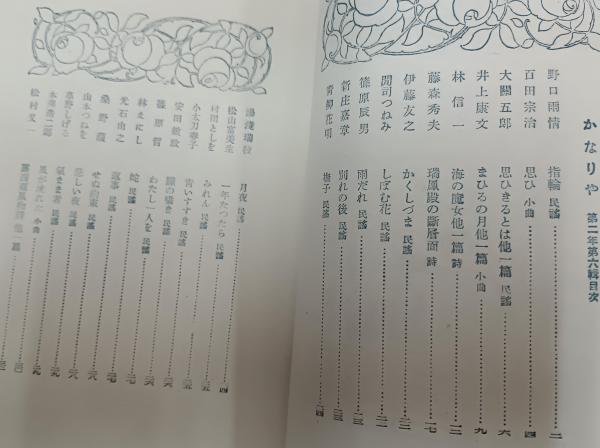 かなりや 第二年第六輯目次
野口雨情 指輪 民謡 二
百田宗治 思ひ 小曲 四
大關五郎 思ひきるとは他一篇 民謡 六
井上康文 まひるの月他一篇 小曲 九
林信一 海の魔女他一篇 詩 一三
藤森秀夫 瑞鳳殿の斷層面 詩 一七
伊藤友之 かくしづま 民謡
閑司つねみ しぼむ花 民謡
篠原辰男 雨だれ 民謡
新庄嘉章 別れの後 民謡
青柳花明 撫子 民謡 二四
湯淺瑞枝 月夜 民謡
松山富美生 一年たつたら 民謡
村田としを みれん 民謡
小太刀專子 青いすすき 民謡
安田敏敬 民謡
篠原哲 わたし一人を 民謡
林えにし 蛇 民謡
光石由之 返事 民謡
桑野薇 せぬ約束 民謡
山本つねを 悲しい夜 民謡
草野しげる 氣まま者 民謡
風が流れた 小曲
松村又一